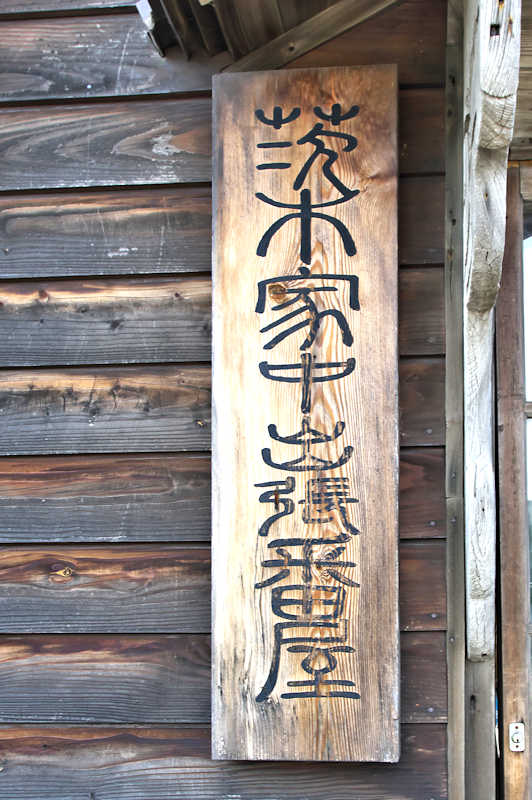 茨木家中出張番屋